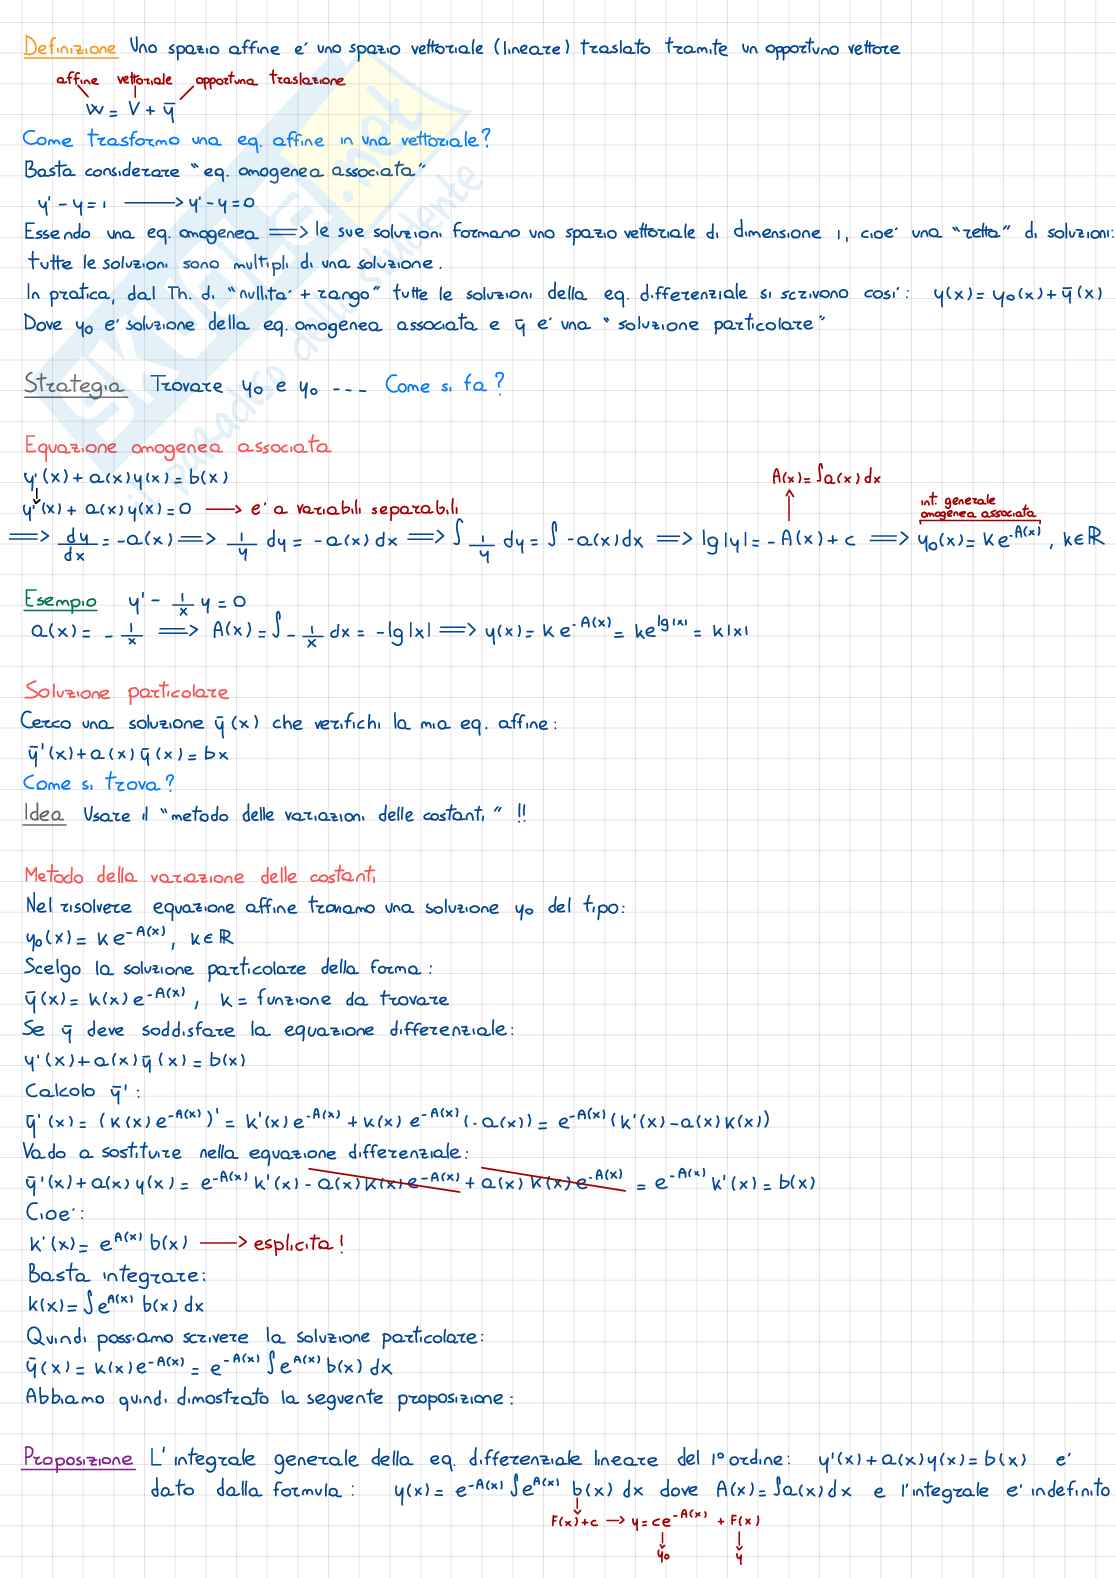 Definizione Uno spazio affine e' uno spazio vettoriale (lineare) traslato tramite un opportuno vettore
affine vettoriale opportuna traslazione
W = V + ȳ
Come trasformo una eq. affine in una vettoriale?
Basta considerare "eq. omogenea associata"
y' - y = 1 ⟶ y' - y = 0
Essendo una eq. omogenea ⟹ le sue soluzioni formano uno spazio vettoriale di dimensione 1, cioe' una "retta" di soluzioni:
tutte le soluzioni sono multipli di una soluzione.
In pratica, dal Th. di "nullita' + rango" tutte le soluzioni della eq. differenziale si scrivono cosi': y(x) = y₀(x) + ȳ(x)
Dove y₀ e' soluzione della eq. omogenea associata e ȳ e' una "soluzione particolare"
Strategia Trovare y₀ e y₀ --- Come si fa?
Equazione omogenea associata
y'(x) + a(x)y(x) = b(x)
A(x) = ∫a(x)dx
y'(x) + a(x)y(x) = 0 ⟶ e' a variabili separabili
int. generale
omogenea associata
⟹ dy/dx = -a(x) ⟹ 1/y dy = -a(x)dx ⟹ ∫ 1/y dy = ∫ -a(x)dx ⟹ lg|y| = -A(x) + c ⟹ y₀(x) = ke^-A(x), k∈ℝ
Esempio y' - 1/x y = 0
a(x) = - 1/x ⟹ A(x) = ∫ - 1/x dx = -lg|x| ⟹ y(x) = ke^-A(x) = ke^lg|x| = k|x|
Soluzione particolare
Cerco una soluzione ȳ(x) che verifichi la mia eq. affine:
ȳ'(x) + a(x)ȳ(x) = bx
Come si trova?
Idea Usare il "metodo delle variazioni delle costanti" !!
Metodo della variazione delle costanti
Nel risolvere equazione affine troniamo una soluzione y₀ del tipo:
y₀(x) = ke^-A(x), k∈ℝ
Scelgo la soluzione particolare della forma:
ȳ(x) = k(x)e^-A(x), k = funzione da trovare
Se ȳ deve soddisfare la equazione differenziale:
y'(x) + a(x)ȳ(x) = b(x)
Calcolo ȳ':
ȳ'(x) = (k(x)e^-A(x))' = k'(x)e^-A(x) + k(x)e^-A(x)(-a(x)) = e^-A(x)(k'(x) - a(x)k(x))
Vado a sostiture nella equazione differenziale:
ȳ'(x) + a(x)y(x) = e^-A(x) k'(x) - a(x)k(x)e^-A(x) + a(x)k(x)e^-A(x) = e^-A(x) k'(x) = b(x)
Cioe':
k'(x) = e^A(x) b(x) ⟶ esplicita!
Basta integrare:
k(x) = ∫e^A(x) b(x)dx
Quindi possiamo scrivere la soluzione particolare:
ȳ(x) = k(x)e^-A(x) = e^-A(x) ∫e^A(x) b(x) dx
Abbiamo quindi dimostrato la seguente proposizione:
Proposizione L'integrale generale della eq. differenziale lineare del 1° ordine: y'(x) + a(x)y(x) = b(x) e'
dato dalla formula: y(x) = e^-A(x) ∫e^A(x) b(x) dx dove A(x) = ∫a(x)dx e l'integrale e' indefinito
F(x) + c → y = ce^-A(x) + F(x)
y₀ ȳ
SKUOLA.net
il paradiso dello studente